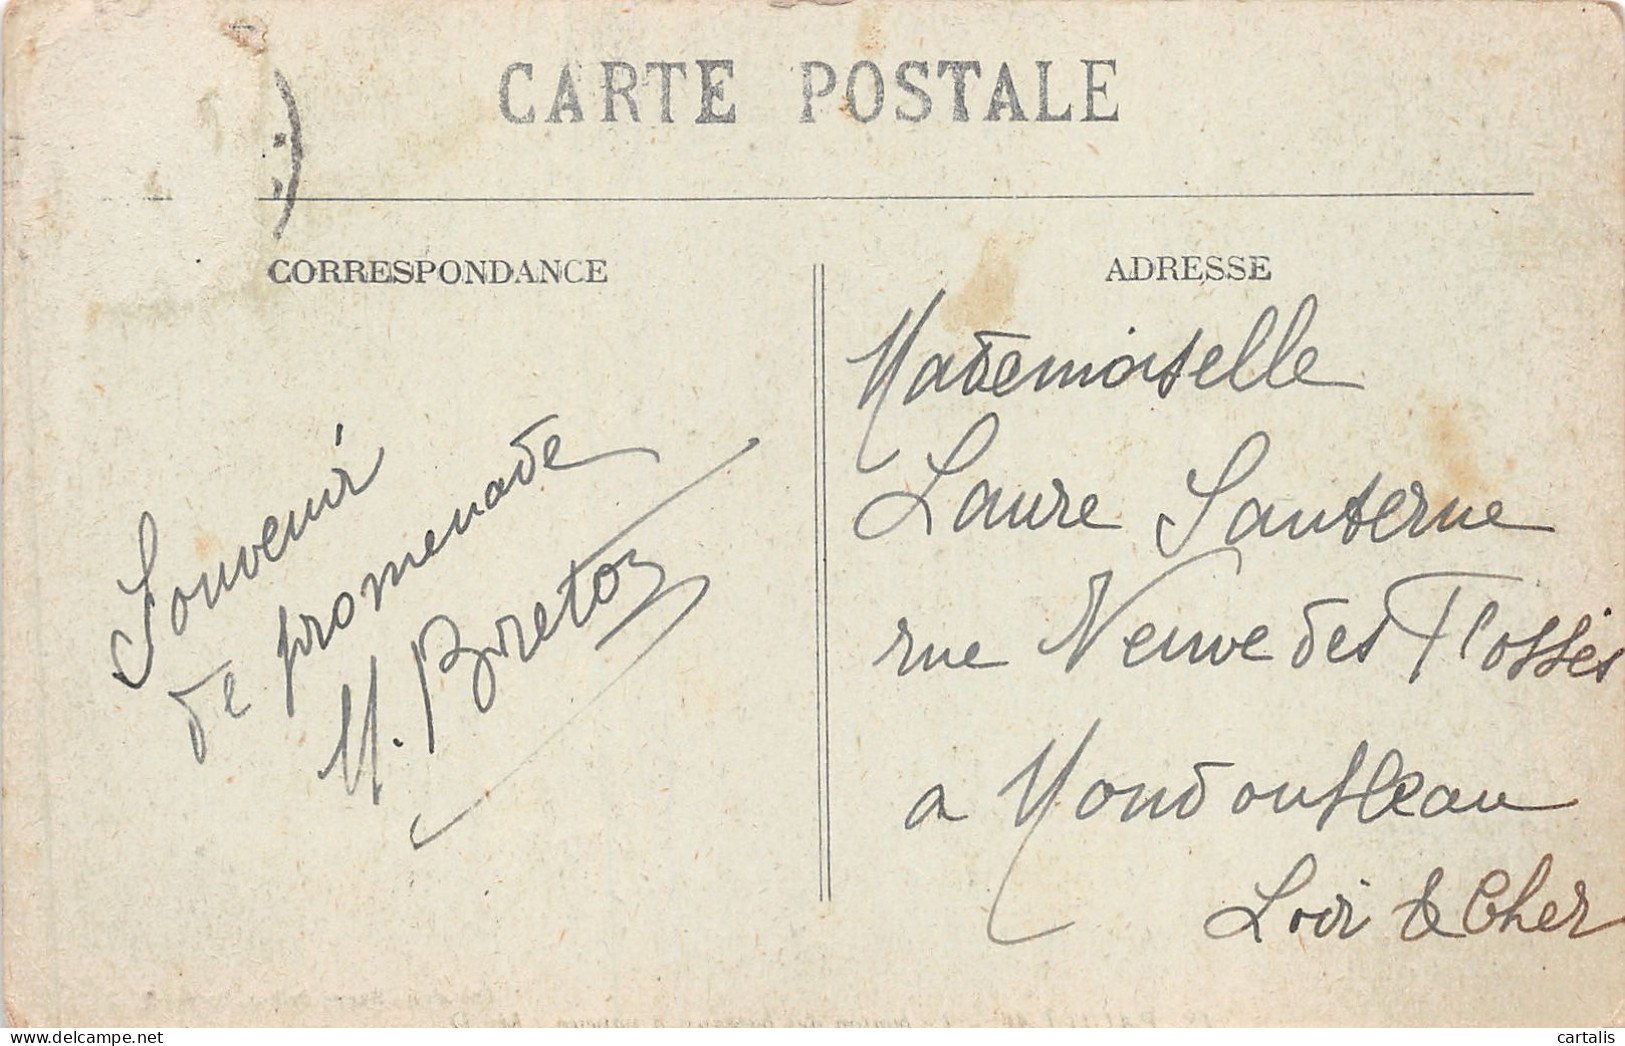 CARTE POSTALE
CORRESPONDANCE
ADRESSE
Souvenir
de promenade
M. Breton
Mademoiselle
Laure Santerne
rue Neuve des Fossés
a Mondoubleau
Loir & Cher
www.delcampe.net
cartalis